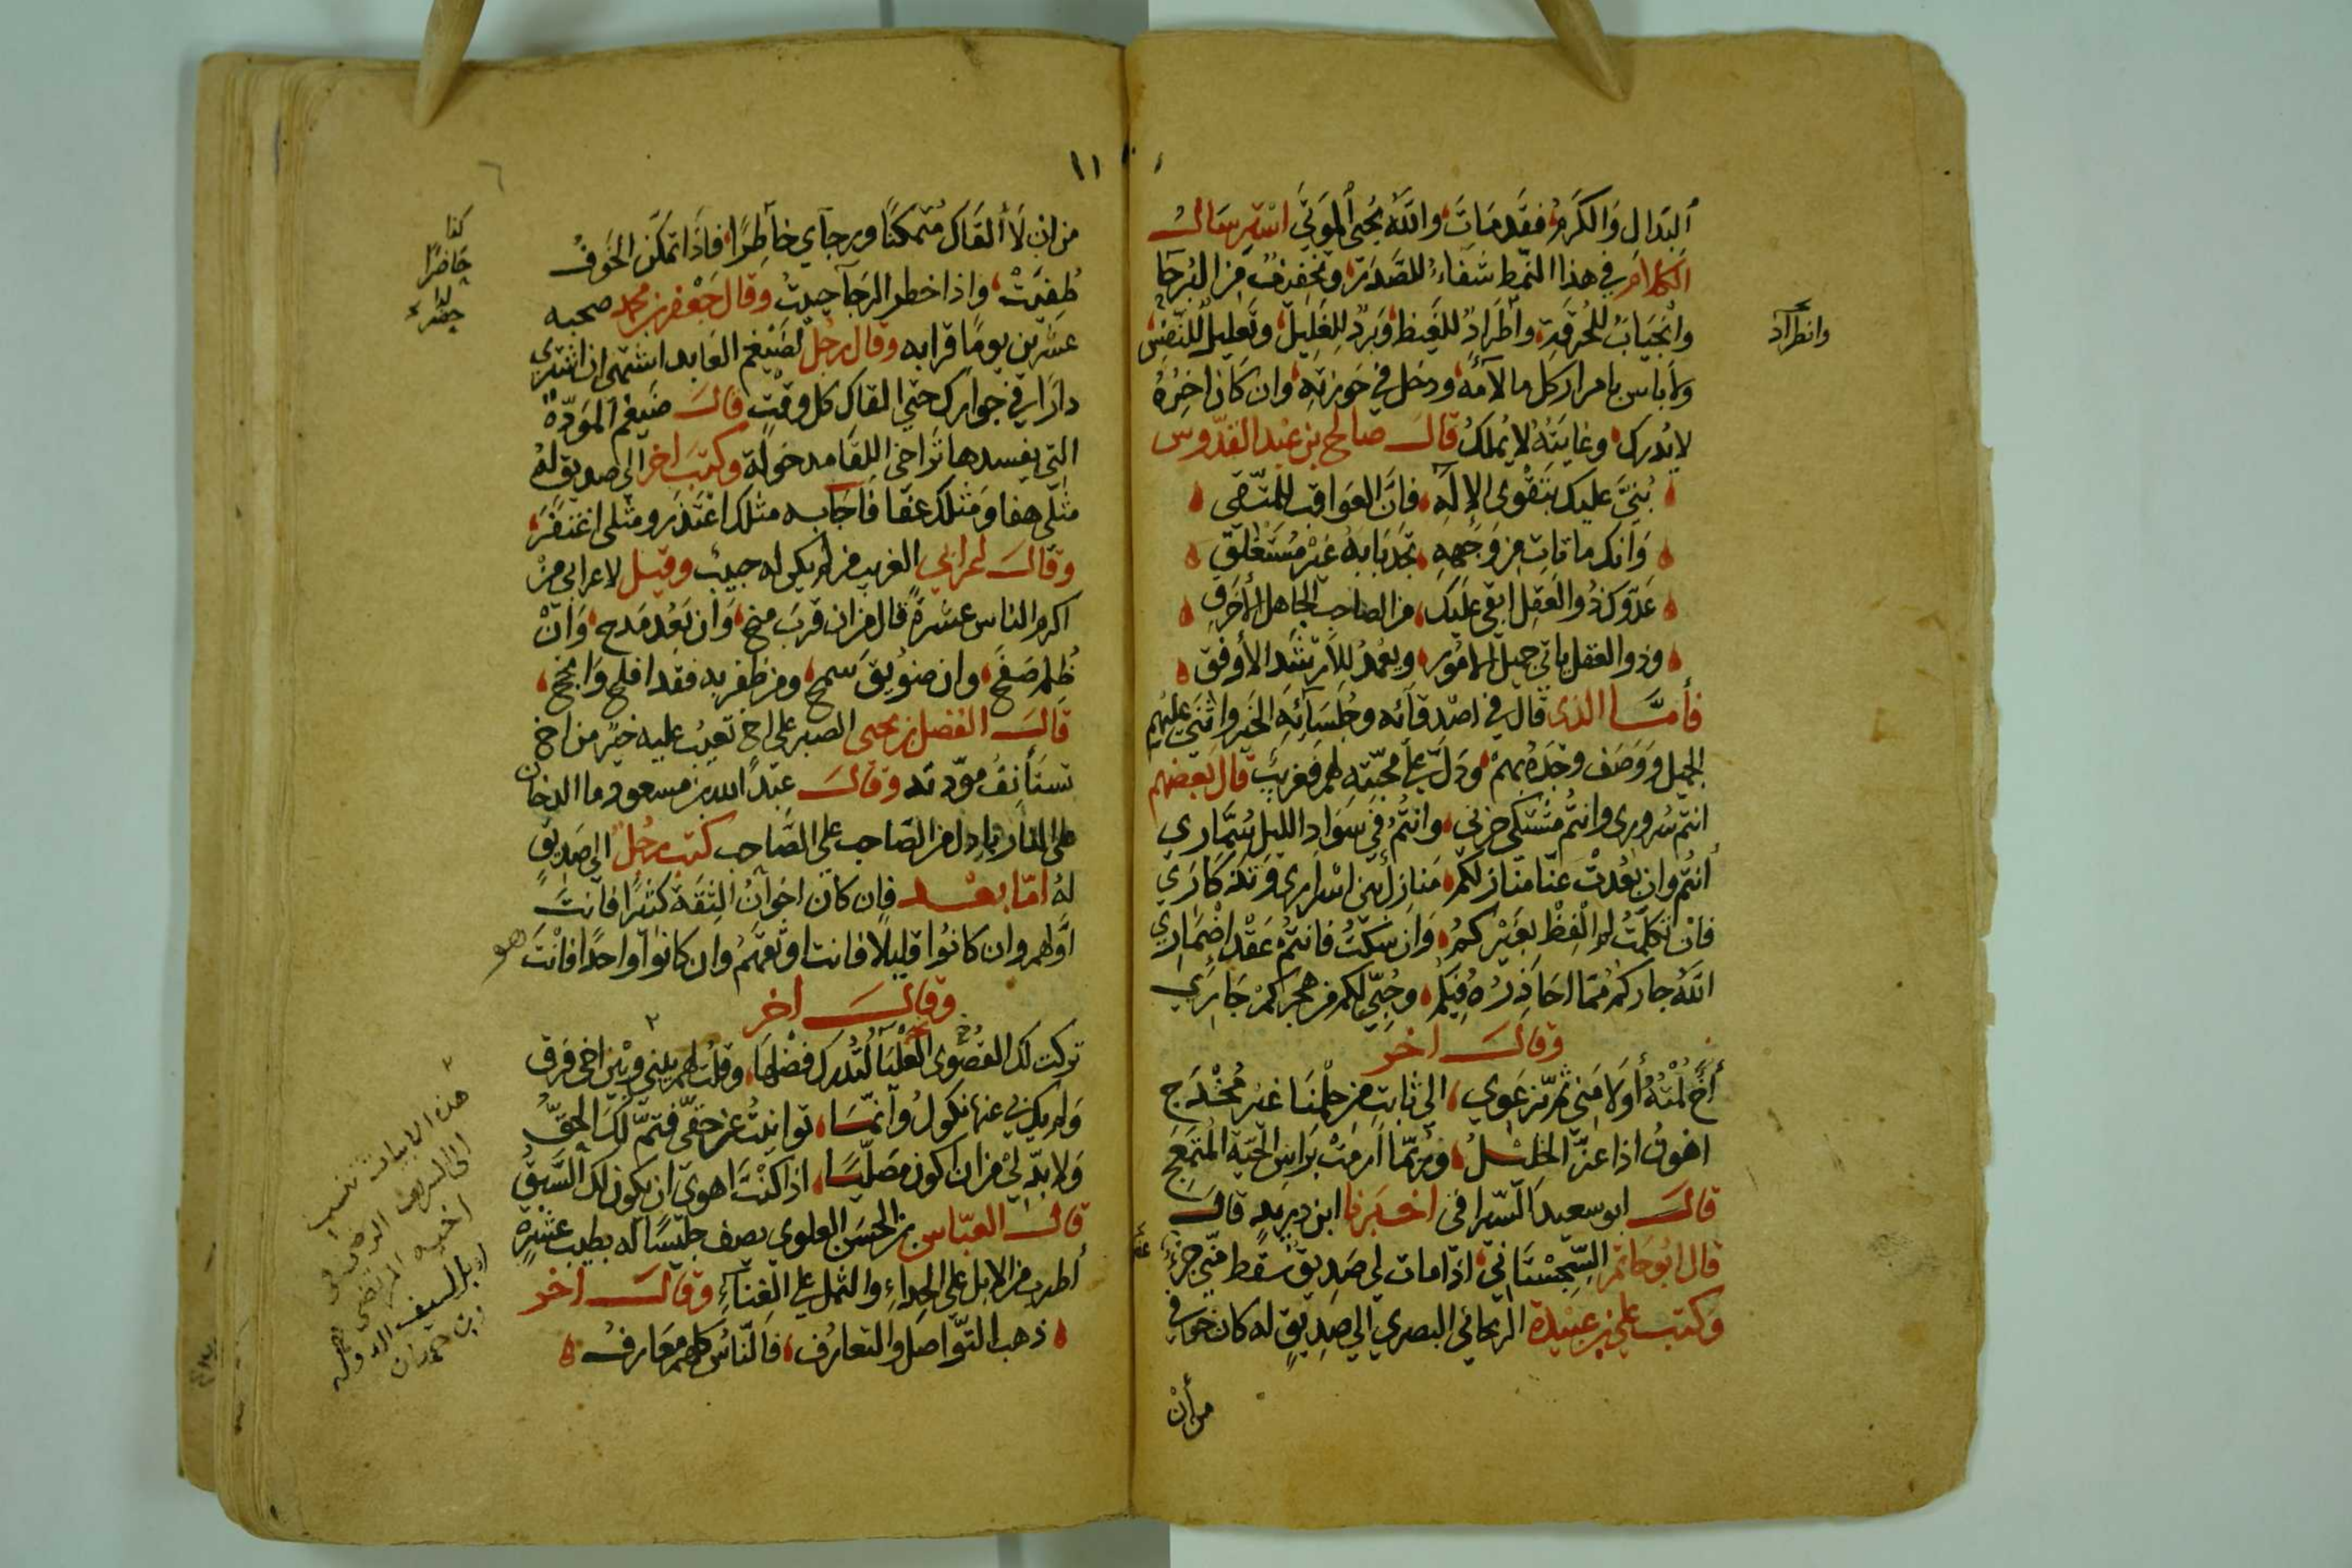 البذال والكرم فقد مات والله يحيى الموتى استرسال
الكلام في هذا النمط شفاء للصدر وتخفيف من البرحا
وانجياب للحرقة واطراد للغيظ وبرد للغليل وتعليل للنفس
وانطراد
ولا باس بامرار كل ما لاءمه ودخل في حوزته وان كان اخره
لا يدرك وغايته لا يملك قال صالح بن عبد القدوس
بني عليك بتقوى الإله فان العواقب للمتقي
وانك ما تات من وجهه تجد بابه غير مستغلق
عدوك ذو العقل ابقى عليك من الصاحب الجاهل الأخرق
وذو العقل ياتي جميل الامور ويعمد للأرشد الأوفق
فأما الذى قال في اصدقائه وجلسائه الخير واثنى عليهم
الجميل ووصف وجده بهم ودل على محبته لهم فغريب قال بعضهم
انتم سروري وانتم مشتكى حزني وانتم في سواد الليل سماري
انتم وان بعدت عنا منازلكم منازل بين اسراري وتذكاري
فان تكلمت لم الفظ بغيركم وان سكت فانتم عقد اضماري
الله جاركم مما احاذره فيكم وحبي لكم من هجركم جاري
وقال اخر
أخ لمته أولا مني ثم نرعوي الى ثابت من حلمنا غير مخدج
اهون اذا عز الخليل وربما ازمت براس الحية المتمعج
قال ابو سعيد السيرافي اخبرنا ابن دريد قال
قال ابو حاتم السجستاني اذا مات لي صديق سقط مني جزء
وكتب علي بن عبيدة الريحاني البصري الى صديق له كان خوفي
من أن
١١
من ان لا ألقاك متمكنا ورجآي خاطرا فاذا تمكن الخوف
كذا
حاضرا
طفيت واذا خطر الرجآ حييت وقال جعفر بن محمد صحبه
عشرين يوما قرابه وقال رجل لضيغم العابد اشتهى ان اشترى
دارا في جوارك حتى القاك كل وقت قال ضيغم المودة
التي يفسدها تراخي اللقا مدخولة وكتب اخر الى صديق له
مثلي هفا ومثلك عفا فاجابه مثلك اعتذر ومثلى اغتفر
وقال اعرابي الغريب من لم يكن له حبيب وقيل لاعرابي من
اكرم الناس عشرة قال من ان قرب منح وان بعد مدح وان
ظلم صفح وان ضويق سمح ومن ظفر به فقد افلح وانجح
قال الفضل بن يحيى الصبر على اخ تعتب عليه خير من اخ
تستأنف مودته وقال عبد الله بن مسعود ما الدخان
على النار بادل من الصاحب على الصاحب كتب رجل الى صديق
له اما بعد فان كان اخوان الثقة كثيرا فانت
اولهم وان كانوا قليلا فانت اوثقهم وان كانوا واحدا فانت هو
وقال اخر
تركت لك القصوى العليا لتدرك فضلها وقلت لهم بيني وبين اخي فرق
ولم يكن بي عنها نكول وانما توانيت عن حقي فتم لك الحق
ولا بد لي من ان اكون مصليا اذا كنت اهوى ان يكون لك السبق
هذه الابيات تنسب
الى الشريف الرضى
اخيه المرتضى
السيف الدوله
بن حمدان
قال العباس بن الحسن العلوي يصف جليسا له بطيب عشرة
أطرب من الابل على الحداء والثمل على الغناء وقال اخر
ذهب التواصل والتعارف فالناس كلهم معارف